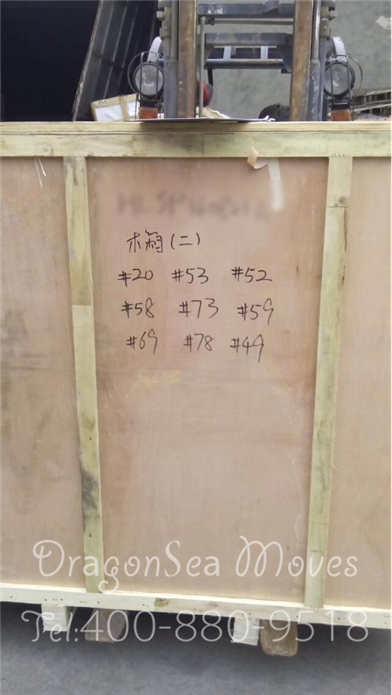 木箱(二)
#20 #53 #52
#58 #73 #59
#69 #78 #49
DragonSea Moves
Tel:400-880-9518